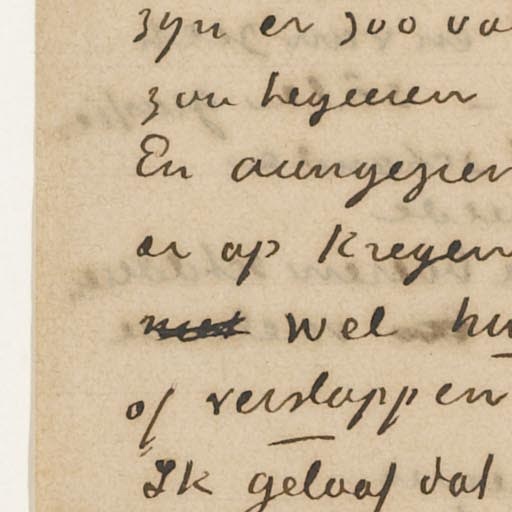 zijn er zoo va
zou begeeren
En aangezien
er op kregen
niet wel hu
of verslappen
Ik geloof dat